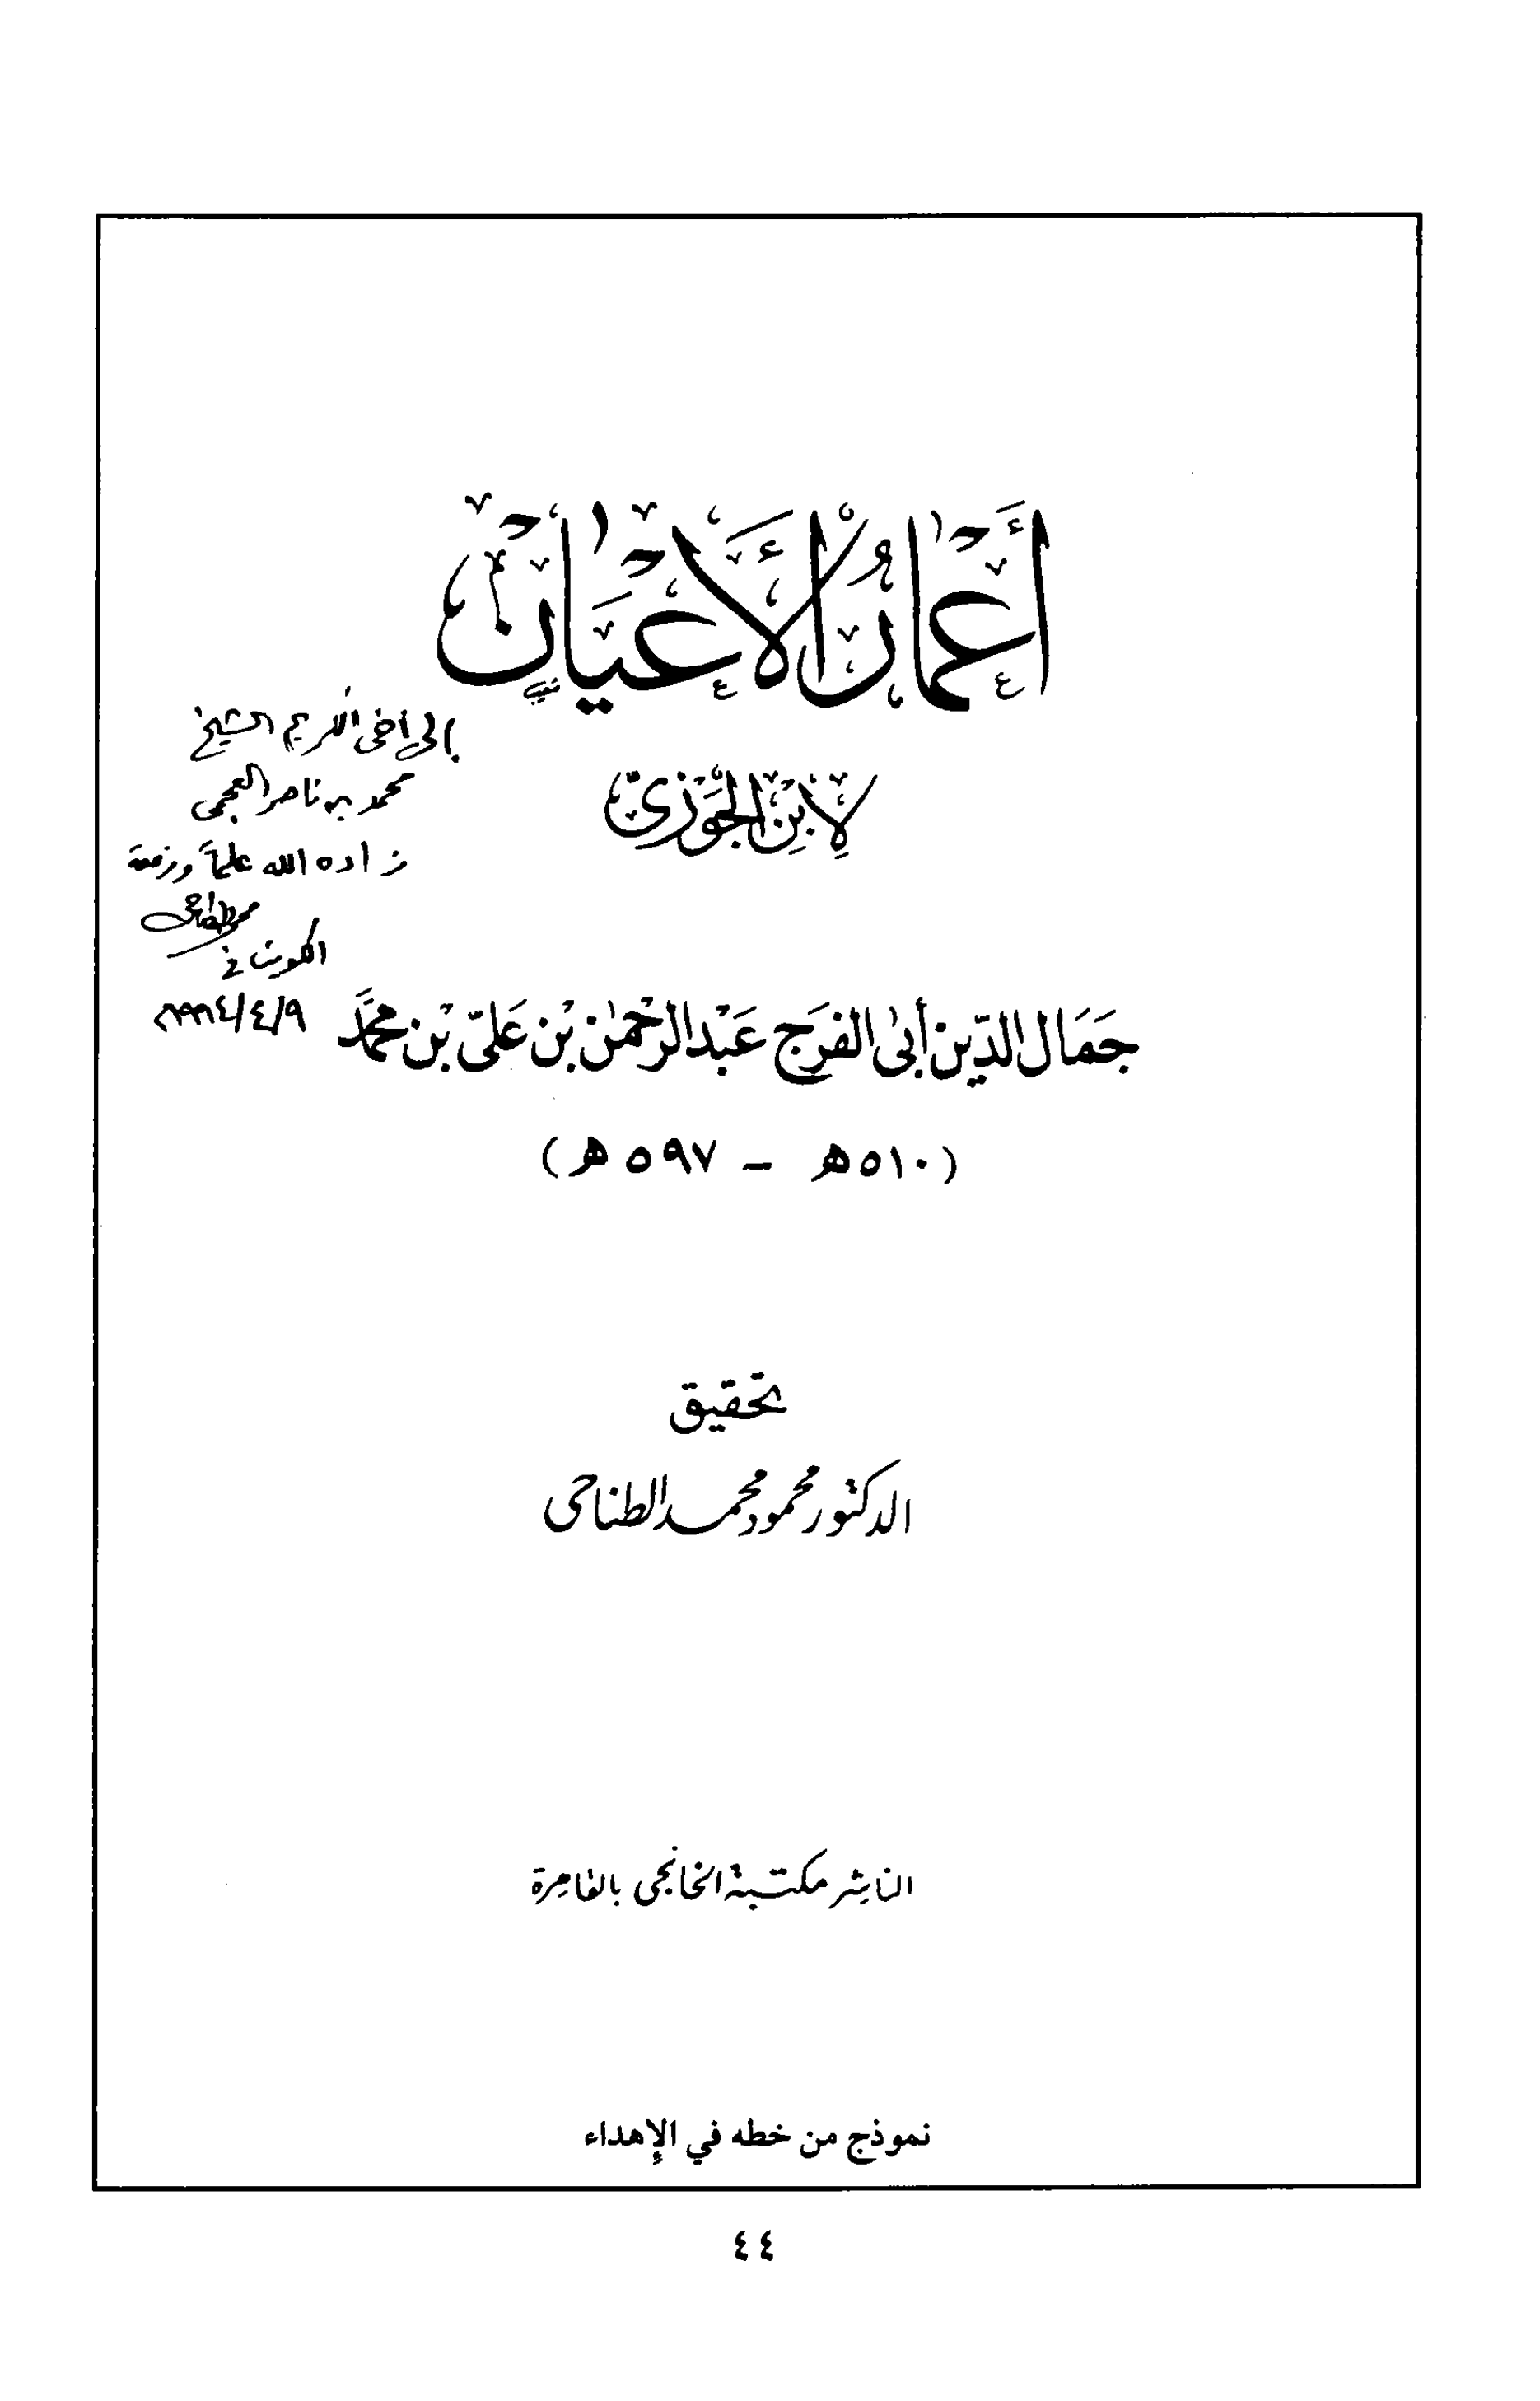 أَعْمَارُ الْأَعْيَانِ
إلى أخي الكريم الشيخ
محمد بن ناصر العجمي
زاده الله علماً ورفعة
محمود الطناحي
الكويت في
٩/٤/١٩٩٤م
لِابْنِ الْجَوْزِيّ
جَمَال الدِّين أبى الفَرَج عَبْد الرحْمٰن بْن عَلىّ بْن محمَّد
(٥١٠هـ - ٥٩٧هـ)
تحقيق
الدكتور محمود محمد الطناحى
الناشر مكتبة الخانجى بالقاهرة
نموذج من خطه في الإهداء
٤٤